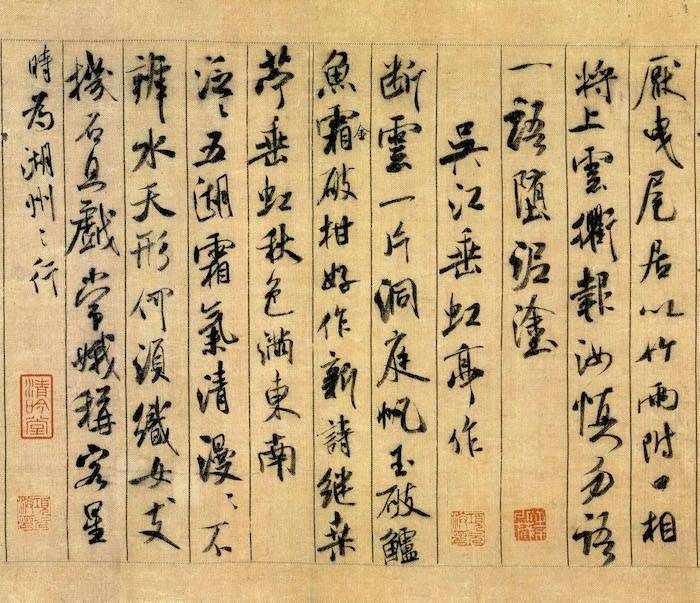 厭曳尾居以竹兩附口相
將上雲衢報汝慎勿語
一語墮泥塗
吳江垂虹亭作
断雲一片洞庭帆玉破鱸
魚霜金破柑好作新詩継桑
苧垂虹秋色滿東南
泛〻五湖霜氣清漫〻不
辨水天形何須織女支
機石且戲常娥稱客星
時為湖州之行
清吟堂